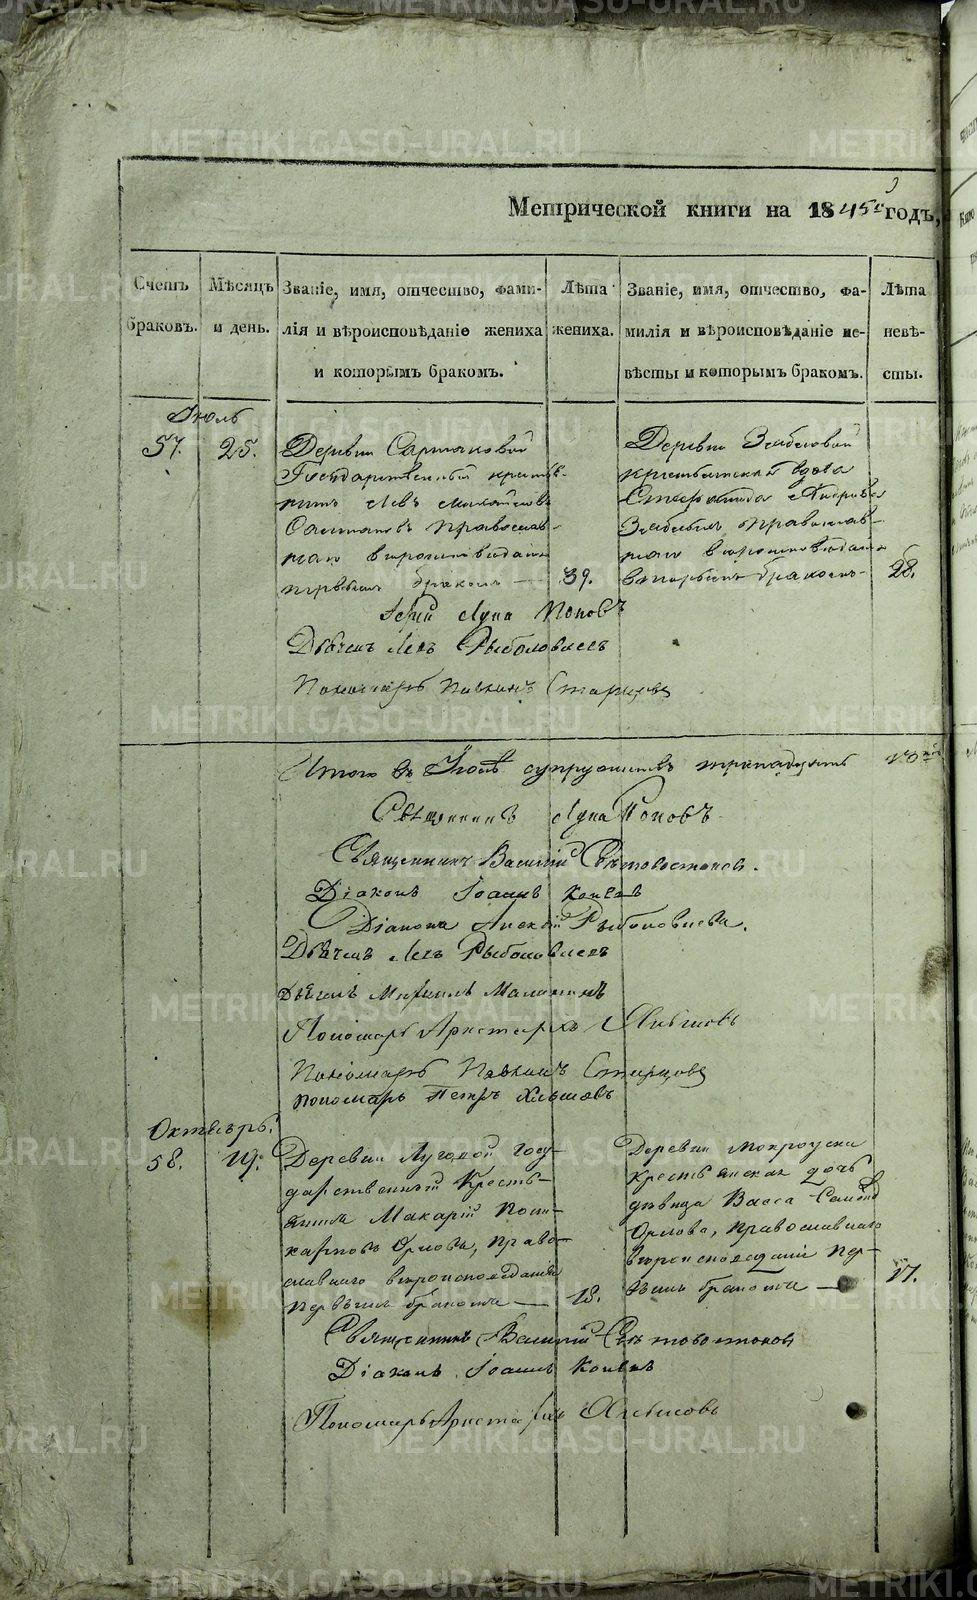 METRIKI.GASO-URAL.RU
Метрической книги на 1845й годъ,
Счетъ браковъ.
Мѣсяцъ и день.
Званіе, имя, отчество, фами-
лія и вѣроисповѣданіе жениха
и которымъ бракомъ.
Лѣта жениха.
Званіе, имя, отчество, фа-
милія и вѣроисповѣданіе не-
вѣсты и которымъ бракомъ.
Лѣта невѣ-
сты.
Іюль
57. 25.
Деревни
Государственный крестья-
нинъ Левъ
православ-
наго вѣроисповѣданія
первымъ бракомъ
39.
Деревни
крестьянская вдова
православ-
наго вѣроисповѣданія
вторымъ бракомъ
28.
Іерей Лука Поповъ
Дьячекъ Левъ Рыболовлевъ
Пономарь Старцевъ
Итого въ Іюлѣ супружествъ тринадцать
Священникъ Лука Поповъ
Священникъ Василій Свѣтовостоковъ.
Діаконъ Іоаннъ
Діаконъ Алексѣй Рыболовлевъ.
Дьячекъ Левъ Рыболовлевъ
Дьячекъ
Пономарь Аристархъ
Пономарь Старцевъ
Пономарь Петръ
Октябрь.
58. 19.
Деревни Луговой Госу-
дарственный Кресть-
янинъ Макарій Поли-
карповъ Орловъ, Право-
славнаго вѣроисповѣданія
первымъ бракомъ
18.
Деревни Мокроуски
крестьянская дочь
дѣвица Васса
Орлова, православнаго
вѣроисповеданія пер-
вымъ бракомъ
17.
Священникъ Василій Свѣтовостоковъ
Діаконъ Іоаннъ
Пономарь Аристархъ